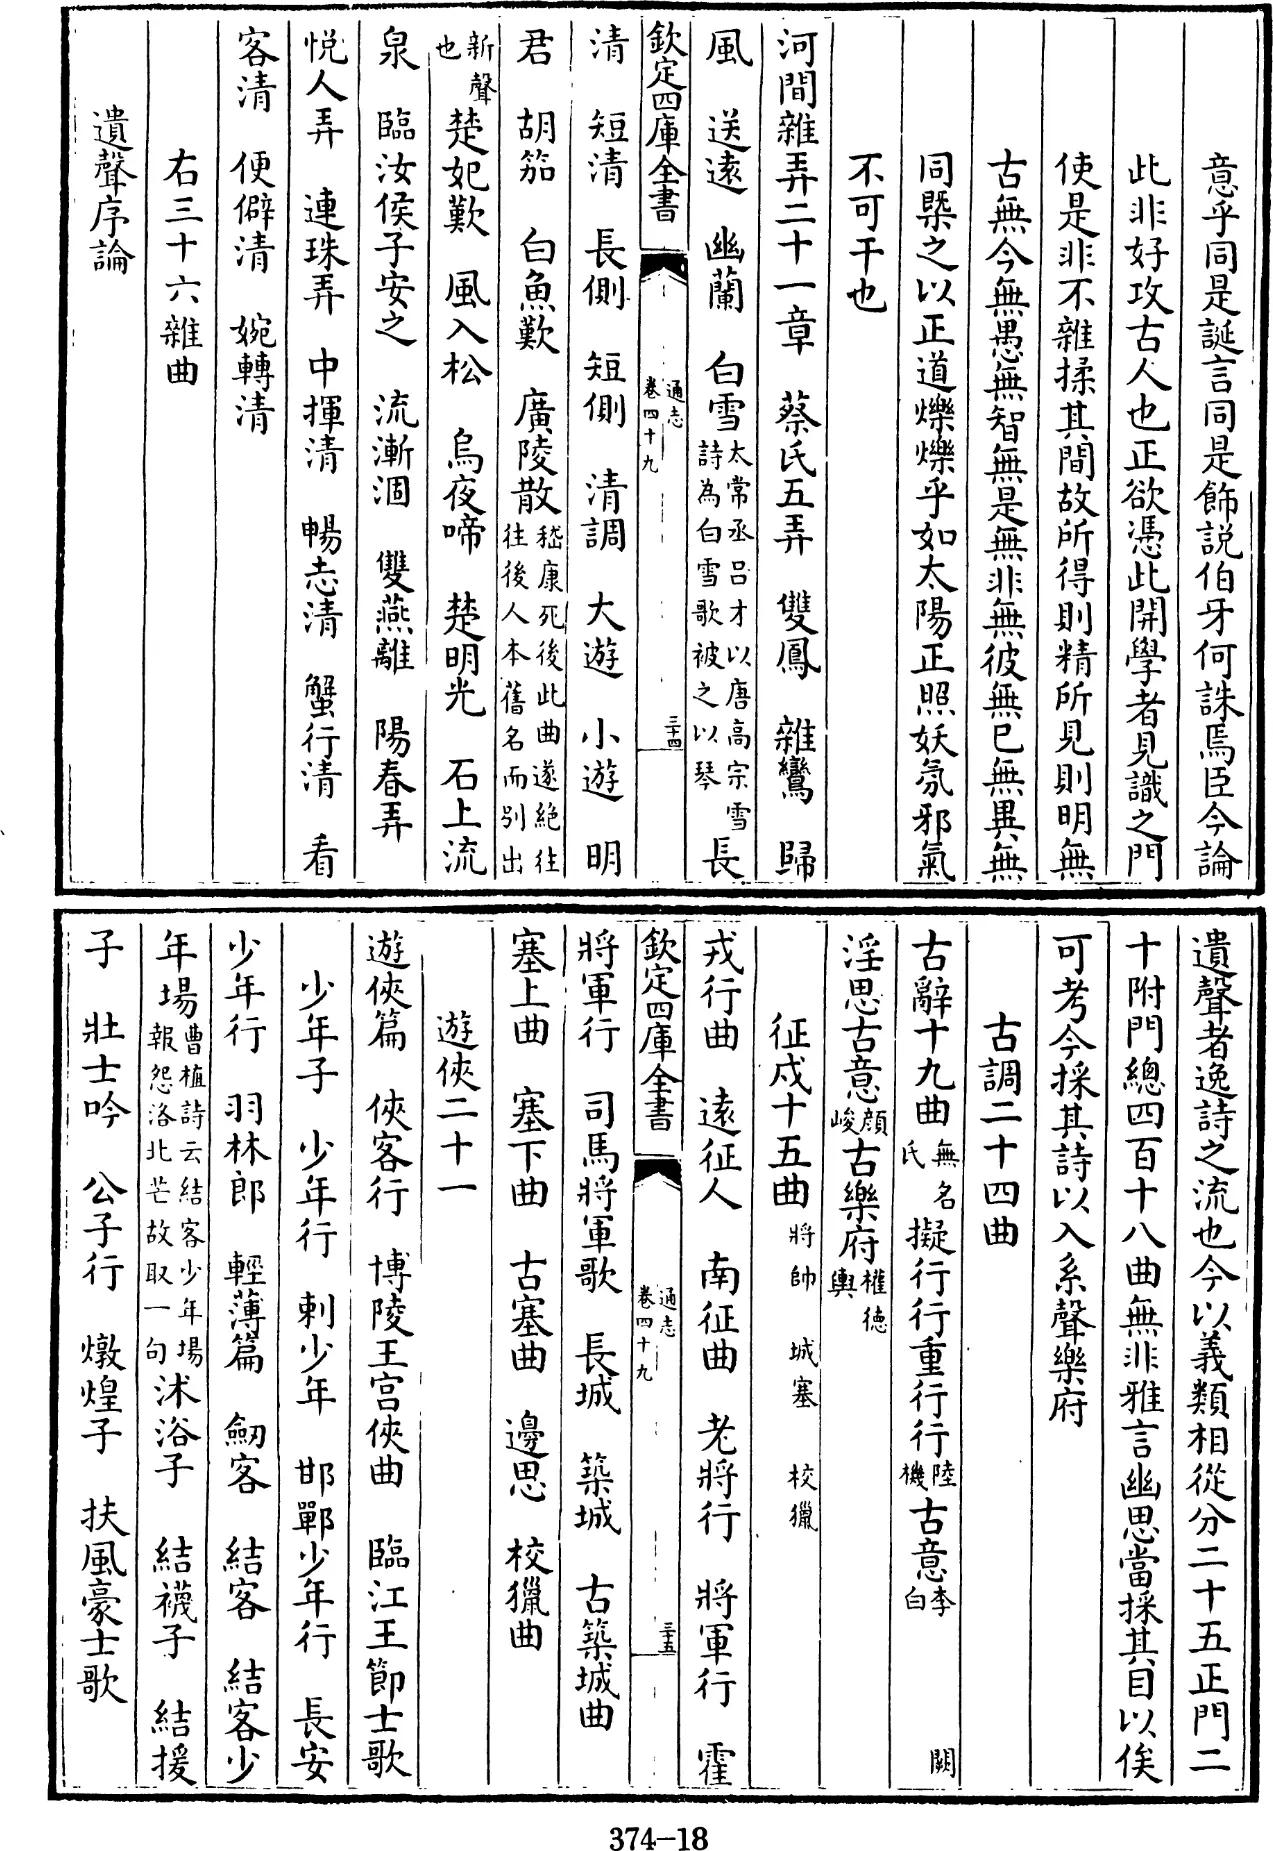 意乎同是誕言同是飾説伯牙何誅焉臣今論
此非好攻古人也正欲憑此開學者見識之門
使是非不雜揉其間故所得則精所見則明無
古無今無愚無智無是無非無彼無已無異無
同槩之以正道爍爍乎如太陽正照妖氛邪氣
不可干也
河間雜弄二十一章 蔡氏五弄 雙鳳 雜鸞 歸
風 送遠 幽蘭 白雪太常丞呂才以唐高宗雪詩為白雪歌被之以琴 長
清 短清 長側 短側 清調 大遊 小遊 明
欽定四庫全書
通志卷四十九
三十四
君 胡笳 白魚歎 廣陵散嵇康死後此曲遂絶往往後人本舊名而別出
新聲也 楚妃歎 風入松 烏夜啼 楚明光 石上流
泉 臨汝侯子安之 流漸洄 雙燕離 陽春弄
悦人弄 連珠弄 中揮清 暢志清 蟹行清 看
客清 便僻清 婉轉清
右三十六雜曲
遺聲序論
遺聲者逸詩之流也今以義類相從分二十五正門二
十附門總四百十八曲無非雅言幽思當採其目以俟
可考今採其詩以入系聲樂府
古調二十四曲
古辭十九曲無名氏 擬行行重行行陸機 古意李白 闕
淫思古意顔峻 古樂府權德輿
征戍十五曲將帥 城塞 校獵
戎行曲 遠征人 南征曲 老將行 將軍行 霍
將軍行 司馬將軍歌 長城 築城 古築城曲
欽定四庫全書
通志卷四十九
三十五
塞上曲 塞下曲 古塞曲 邊思 校獵曲
遊俠二十一
遊俠篇 俠客行 博陵王宫俠曲 臨江王節士歌
少年子 少年行 刺少年 邯鄲少年行 長安
少年行 羽林郎 輕薄篇 劒客 結客 結客少
年場曹植詩云結客少年場報怨洛北芒故取一句 沐浴子 結襪子 結援
子 壯士吟 公子行 燉煌子 扶風豪士歌
374-18